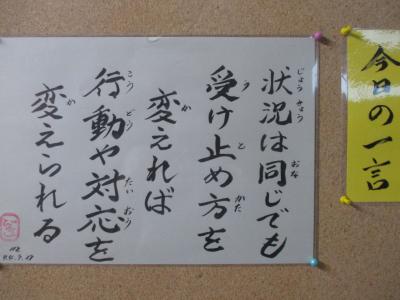 今日の一言
状況は同じでも
受け止め方を
変えれば
行動や対応を
変えられる